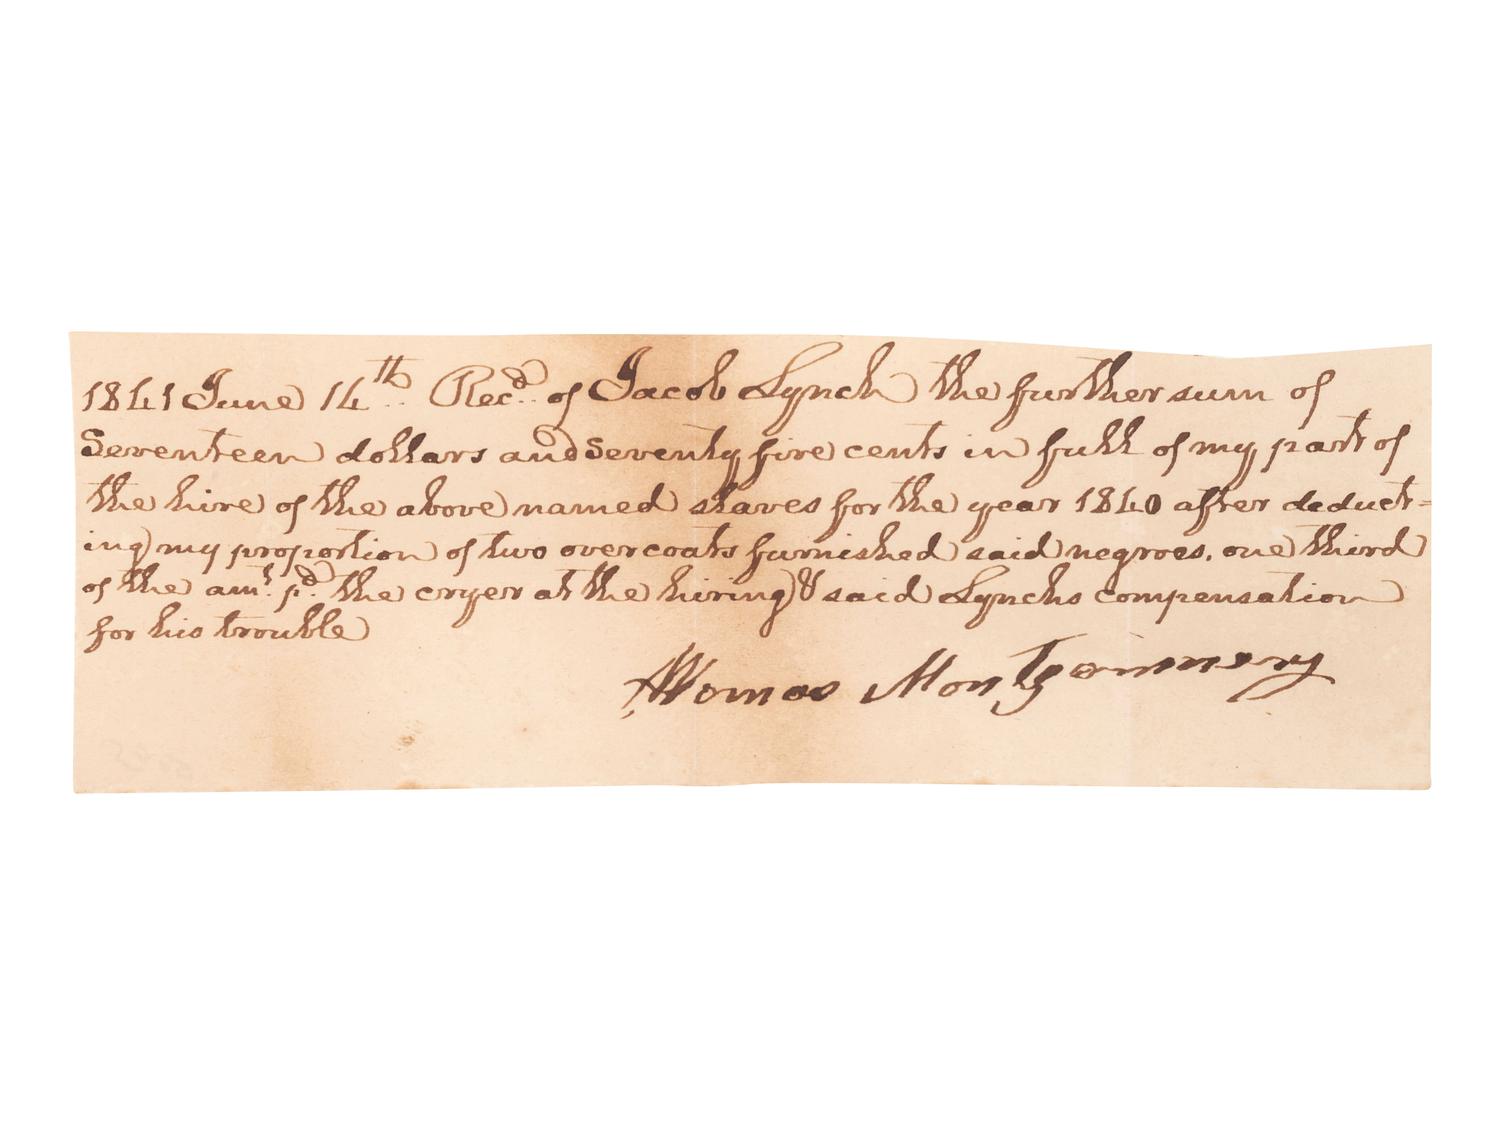 1841 June 14th Recd. of Jacob Lynch the further sum of
Seventeen dollars and Seventy five cents in full of my part of
the hire of the above named slaves for the year 1840 after deduct=
ing my proportion of two overcoats furnished said negroes, one third
of the amt. pd. the cryer at the hiring & said Lynchs compensation
for his trouble
Thomas Montgommery